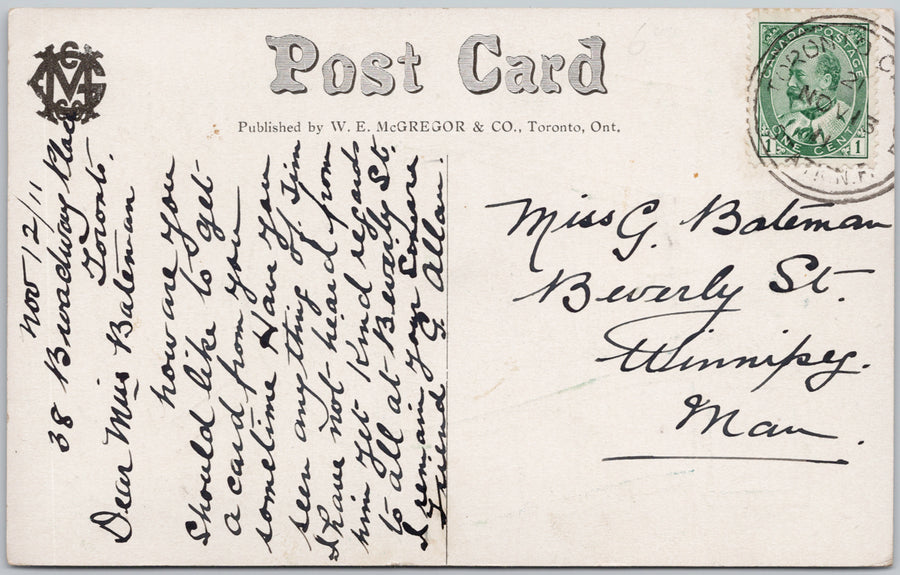 Post Card
Published by W. E. McGREGOR & CO., Toronto, Ont.
CANADA POSTAGE
ONE CENT
1 1
Nov 12/11
38 Broadway Place
Toronto.
Dear Miss Bateman
how are you
should like to get
a card from you
sometime Have you
seen anything of Jim
I have not heard from
him yet Kind regards
to all at Beverly St.
I remain your Sincere
Friend G Allan.
Miss G. Bateman
Beverly St.
Winnipeg.
Man.